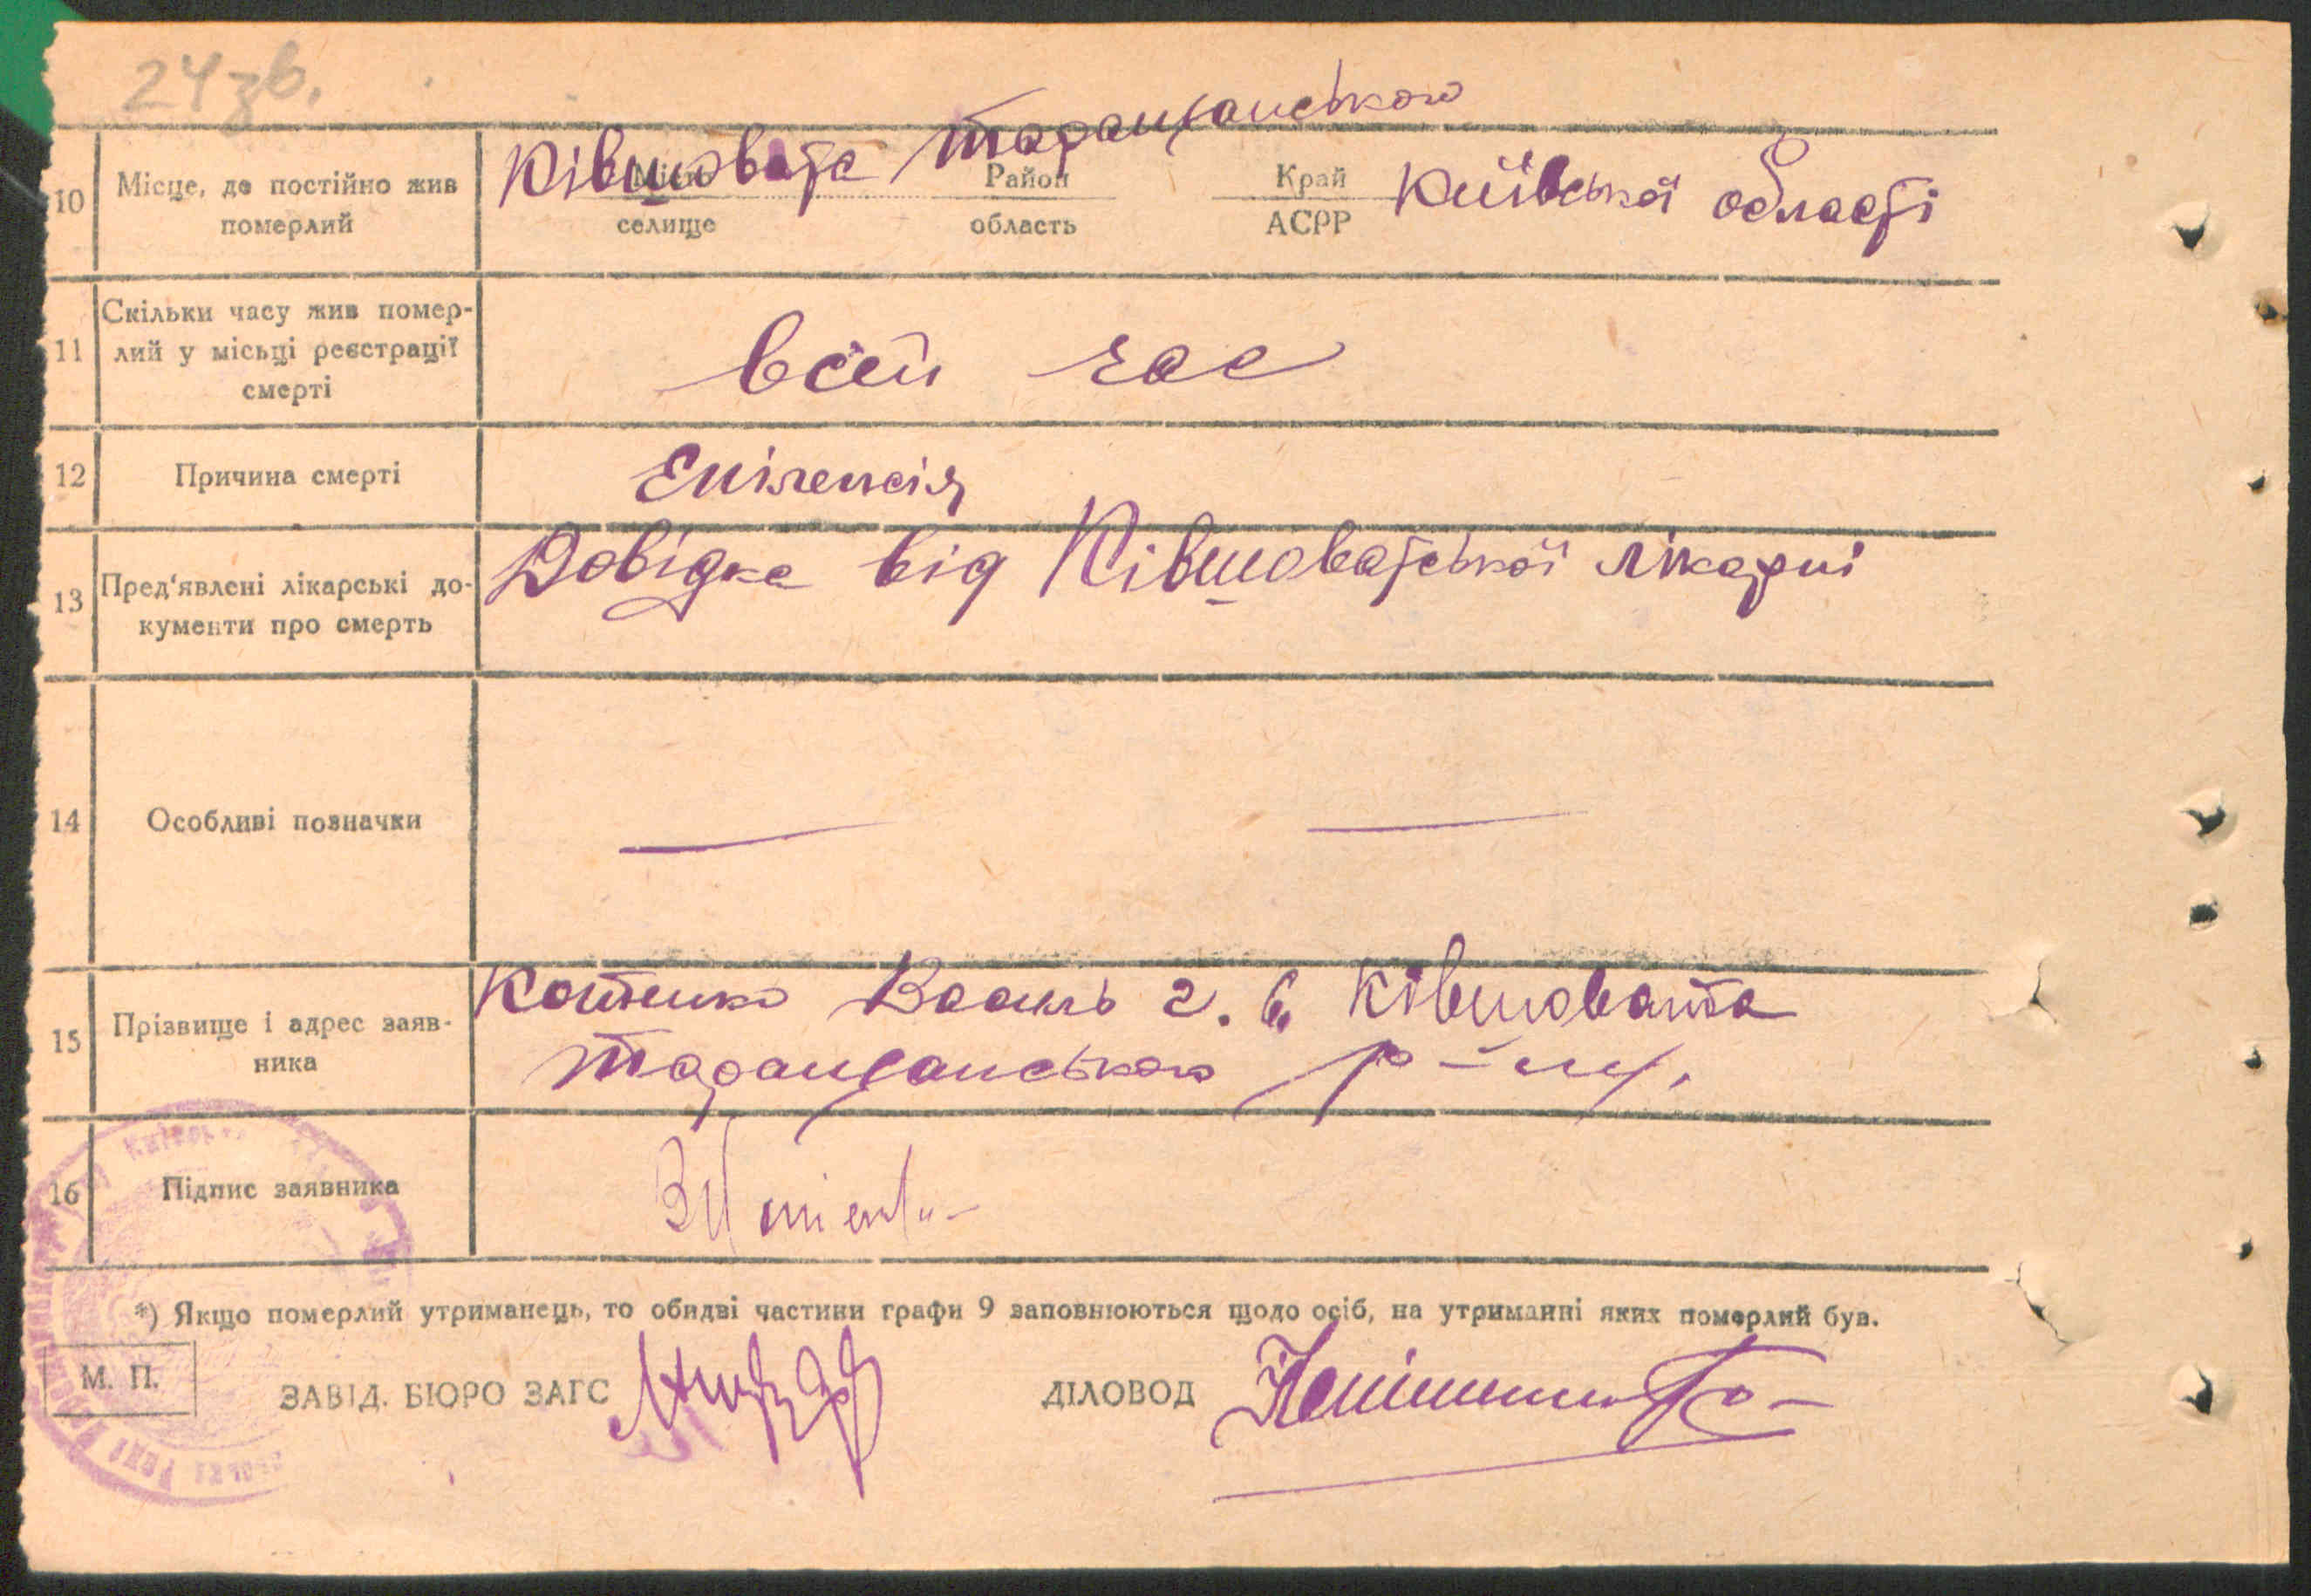 24 зв.
10 Місце, де постійно жив померлий Ківшовата Таращанського Київської області
Місто Район Край
селище область АСРР
11 Скільки часу жив помер-
лий у місьці реєстрації
смерті
всей час
12 Причина смерті Епілепсія
13 Пред'явлені лікарські до-
кументи про смерть
Довідка від Ківшоватської лікарні
14 Особливі позначки — —
15 Прізвище і адрес заяв-
ника
Василь с. Ківшовата
Таращанського р-ну.
16 Підпис заявника
*) Якщо померлий утриманець, то обидві частини графи 9 заповнюються щодо осіб, на утриманні яких померлий був.
М. П. ЗАВІД. БЮРО ЗАГС ДІЛОВОД